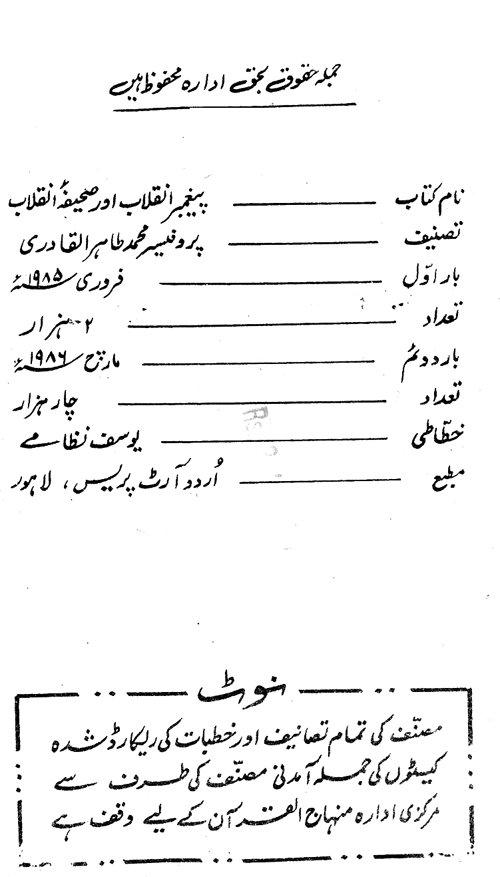 جملہ حقوق بحق ادارہ محفوظ ہیں
نام کتاب ـــــ پیغمبرِ انقلاب اور صحیفۂ انقلاب
تصنیف ـــــ پروفیسر محمد طاہر القادری
بار اوّل ـــــ فروری ۱۹۸۵ء
تعداد ـــــ ۲ ہزار
بار دوئم ـــــ مارچ ۱۹۸۶ء
تعداد ـــــ چار ہزار
خطّاطی ـــــ یوسف نظامے
مطبع ـــــ اُردو آرٹ پریس، لاہور
نوٹ
مصنّف کی تمام تصانیف اور خطبات کی ریکارڈ شدہ
کیسٹوں کی جملہ آمدنی مصنّف کی طرف سے
مرکزی ادارہ منہاج القرآن کے لیے وقف ہے